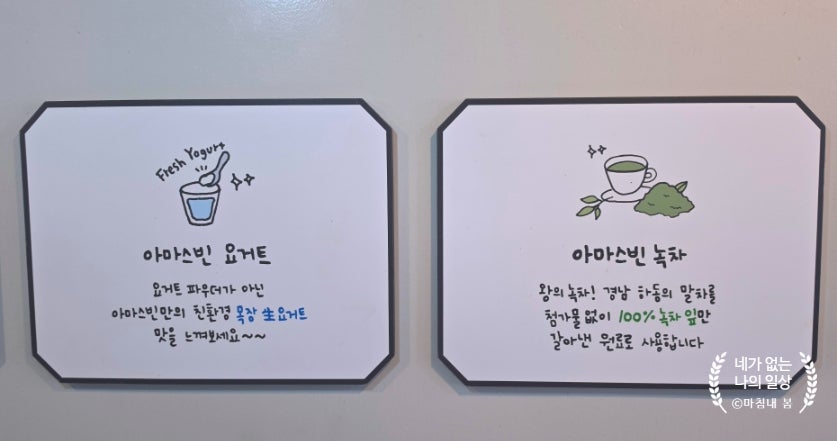 Fresh Yogurt
아마스빈 요거트
요거트 파우더가 아닌
아마스빈만의 친환경 목장 生요거트
맛을 느껴보세요~~
아마스빈 녹차
왕의 녹차! 경남 하동의 말차를
첨가물 없이 100% 녹차 잎만
갈아낸 원료로 사용합니다
네가 없는
나의 일상
©마침내 봄